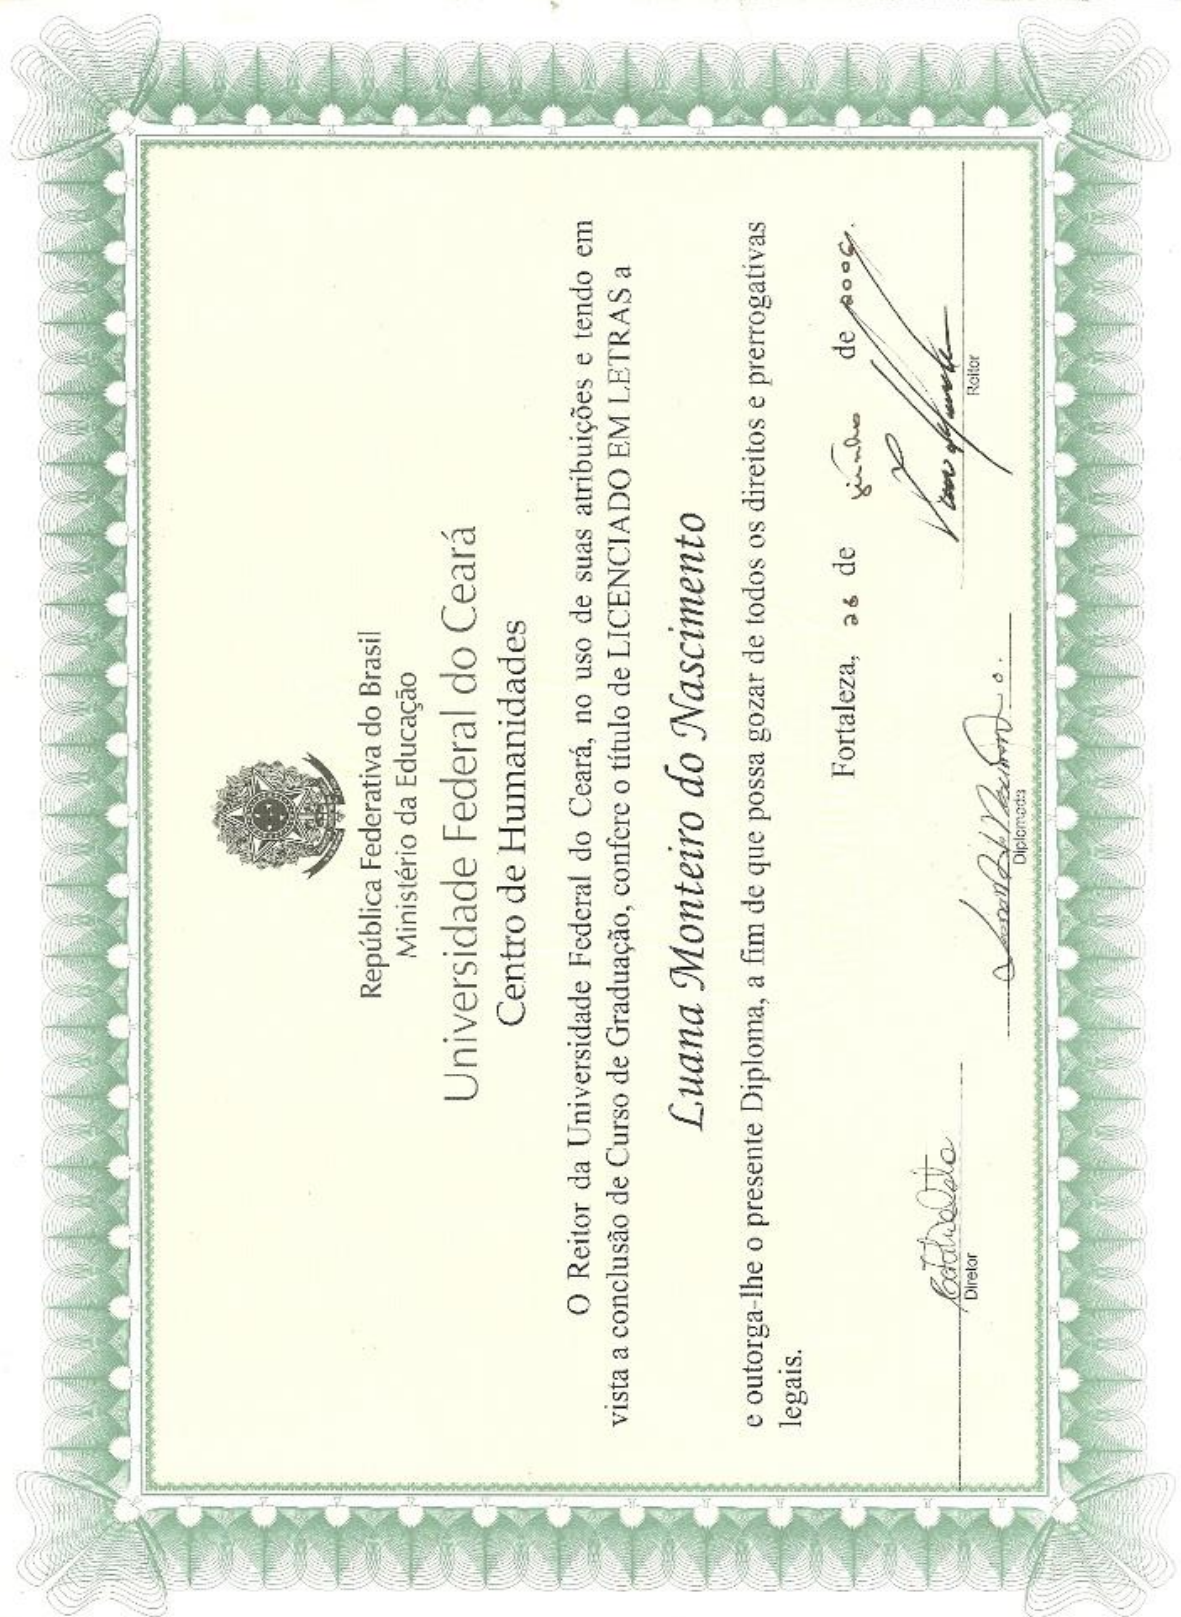 República Federativa do Brasil
Ministério da Educação
Universidade Federal do Ceará
Centro de Humanidades
O Reitor da Universidade Federal do Ceará, no uso de suas atribuições e tendo em
vista a conclusão de Curso de Graduação, confere o título de LICENCIADO EM LETRAS a
Luana Monteiro do Nascimento
e outorga-lhe o presente Diploma, a fim de que possa gozar de todos os direitos e prerrogativas
legais.
Fortaleza, 26 de junho de 2006.
Diretor
Diplomada
Reitor